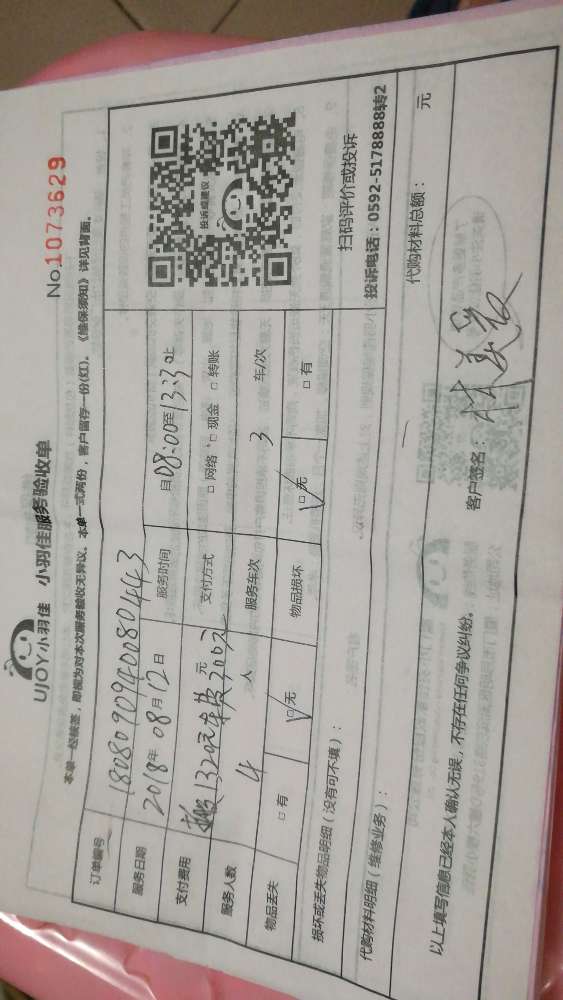 UJOY小羽佳 小羽佳服务验收单
No.1073629
本单一经核签，即视为对本次服务验收无异议。本单一式两份，客户留存一份(红)。《维保须知》详见背面。
订单编号 1808090940080443
服务日期 2018年08月12日 服务时间 自08:00至13:30止
支付费用 搬费1320元车费300元 元 支付方式 □网络 □现金 □转账
服务人数 4 人 服务车次 3 车/次
物品丢失 □有 □无 物品损坏 □无 □有
投诉或建议
扫码评价或投诉
投诉电话：0592-5178888转2
损坏或丢失物品明细（没有可不填）：
代购材料明细（维修业务）： 代购材料总额： 元
以上填写信息已经本人确认无误，不存在任何争议纠纷。 客户签名：